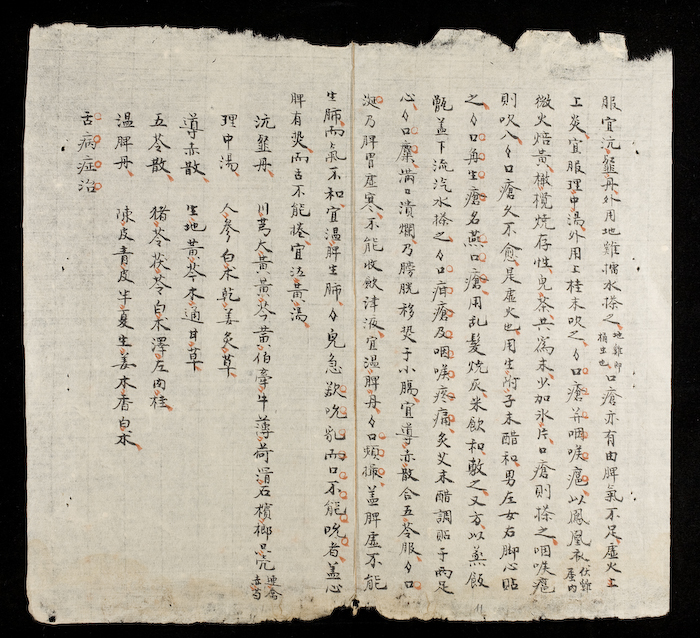 服宜沆瀣丹外用地雞擂水搽之地雞即虫也口瘡亦有由脾氣不足虛火上
上炎宜服理中湯外用上桂末吹之々口瘡并咽喉瘟以鳳凰衣伏雞蛋內
微火焙黃橄欖燒存性兒茶共為末少加氷片口瘡則搽之咽喉瘟
則吹入々口瘡久不愈是虛火也用生附子末醋和男左女右脚心貼
之々口角生瘡名燕口瘡用乱髮燒灰米飲和敷之又方以蒸飯
甑蓋下流汽水搽之々口疳瘡及咽喉疼痛灸艾末醋調貼于兩足
心々口糜滿口潰爛乃膀胱移热于小腸宜導赤散合五苓服々口
涎乃脾胃虛寒不能收歛津液宜溫脾丹々口頻撮盖脾虛不能
生肺而氣不和宜溫脾生肺々兒急欲吮乳而口不能吮者盖心
脾有热而舌不能捲宜泻黃湯
沆瀣丹 川芎大黃黃芩黃伯牽牛薄荷滑石檳榔只壳連翹赤芍
理中湯 人參白朮乾姜炙草
導赤散 生地黃芩木通甘草
五苓散 猪苓茯苓白朮澤左肉桂
溫脾丹 陳皮青皮半夏生姜木香白朮
舌病症治